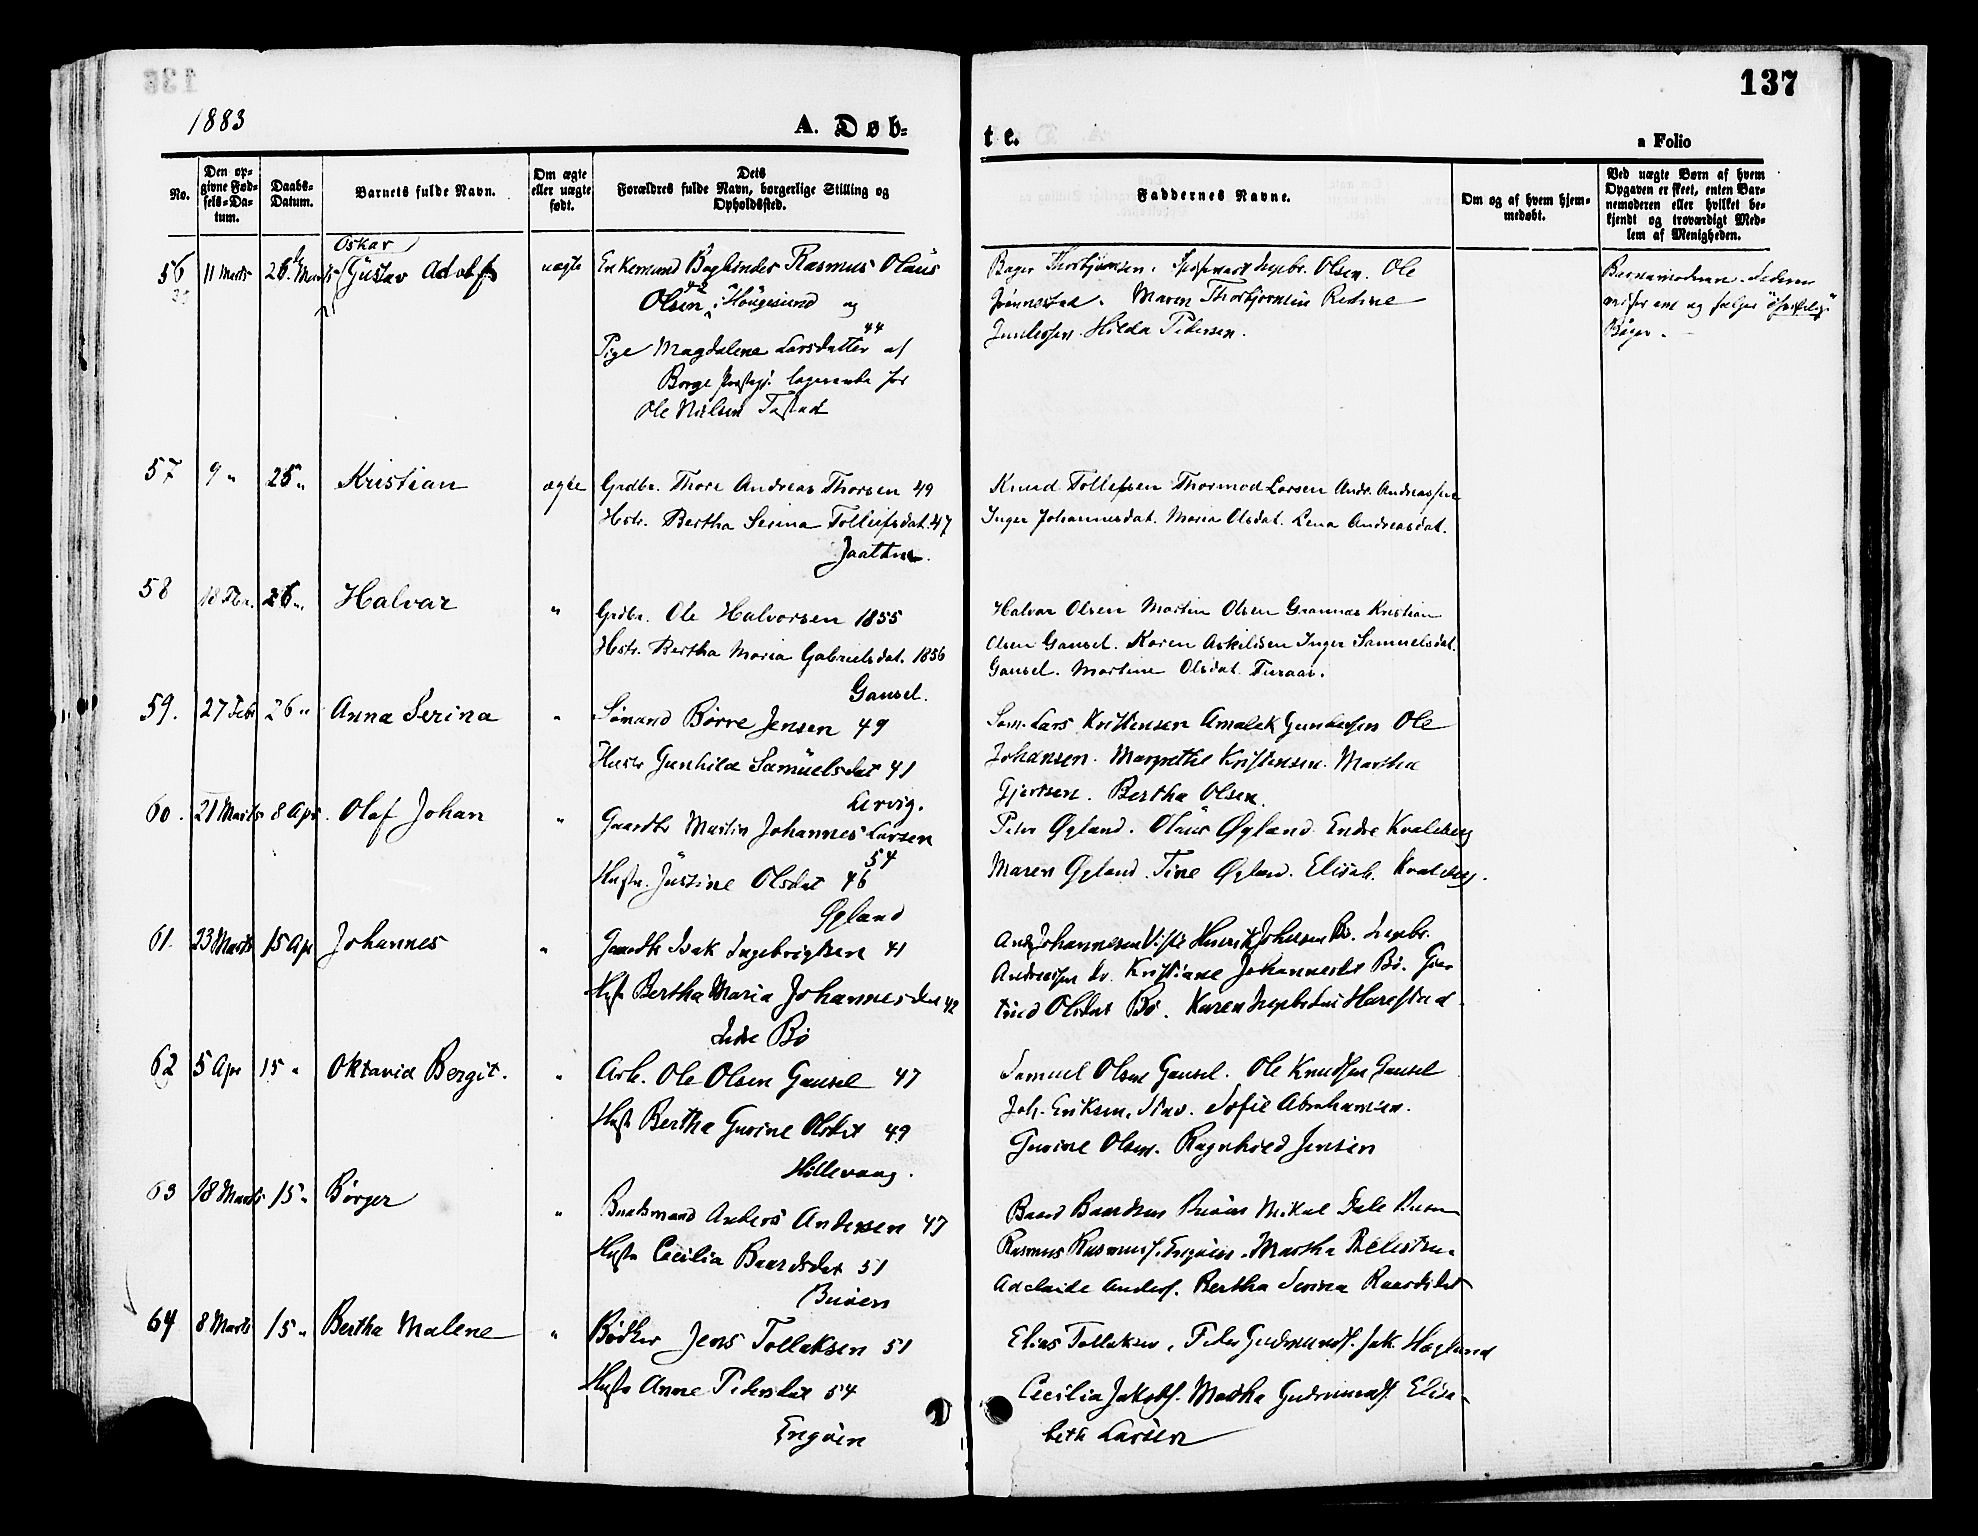 137
1883
A. Døb-
te.
a Folio
No.
Den op-
givne Fød-
sels-Da-
tum.
Daabs-
Datum.
Barnets fulde Navn.
Om ægte
eller uægte
født.
Dets
Forældres fulde Navn, borgerlige Stilling og
Opholdssted.
Faddernes Navne.
Om og af hvem hjem-
medøbt.
Ved uægte Børn af hvem
Opgaven er skeet, enten Bar-
nemoderen eller hvilket be-
kjendt og troværdigt Med-
lem af Menigheden.
Oskar
56 11 Marts 26. Marts Gustav Adolf uægte Enkemand Rasmus Olaus
Olsen 42 Hougesund og
Pige Magdalene Larsdatter 44 af
Borge Præstegj. logerende for
Ole Nielsen Tastad
Bager Thorbjørnsen. Ingebr. Olsen. Ole
Maren Thorbjørnsen
Hilda Pedersen.
Barnemoderen. Faderen
og følger
Bøger.
57 9 " 25 " Kristian ægte Grdbr. Thore Andreas Thorsen 49
Hstr. Bertha Serina Tolleifsdat. 47
Jaatten.
Knud Tollefsen Thormod Larsen Andr. Andreassen
Inger Johannesdat. Maria Olsdat. Lena Andreasdat.
58 18 Fbr. 26 " Halvar " Grdbr. Ole Halvorsen 1855
Hstr. Bertha Maria Gabrielsdat. 1856
Gausel.
Halvor Olsen Martin Olsen Grannes Kristian
Olsen Gausel. Karen Askildsen Inger Samuelsdat.
Gausel. Martine Olsdat.
59. 27 Febr 26 " Anna Serina " Sømand Børre Jensen 49
Hustr Gunhild Samuelsdat 41
Lervig.
Lars Kristensen Amalek Gundersen Ole
Johansen. Margrethe Kristensen. Martha
Gjertsen. Bertha Olsen.
60. 21 Marts 8 Apr. Olaf Johan " Gaardbr Martin Johannes Larsen
54
Hustr. Justine Olsdat 46
Øgland
Peter Øgland. Olaus Øgland. Endre Kvaleberg
Maren Øgland. Tine Øgland. Elisab. Kvaleberg.
61. 23 Marts 15 Apr Johannes " Gaardbr Isak Ingebrigtsen 41
Hustr Bertha Maria Johannesdat 42
Indre Bø
Andr Johannesen Viste Henrik Johnsen Bø. Ingebr.
Andreasen do. Kristiane Johannesdt Bø. Gjer-
trud Olsdat Bø. Karen Ingebrdat Harestad.
62 5 Apr 15 " Oktavia Bergit. " Arb. Ole Olsen Gausel 47
Hustr Bertha Gurine Olsdat 49
Hillevaag.
Samuel Olsen Gausel. Ole Knudsen Gausel
Joh. Eriksen, Stav. Sofie Abrahamsen.
Gurine Olsen. Ragnhild Jensen
63 18 Marts 15 " Børger " Baadsmand Anders Andersen 47
Hustr Cecilia Baardsdat 51
Buøen
Baard Baardsen Buøen Mikal Dale Buøen
Rasmus Rasmuss. Engøen. Martha
Adelaide Anders. Bertha Serina Baardsdat
64 8 Marts 15 " Bertha Malene " Bødker Jens Tollaksen 51
Hustr Anne Pedersdat 54
Engøen
Elias Tollaksen. Peder Gudmunds. Jak. Haglund
Cecilia Jakobs. Martha Gudmunds. Elisa-
beth Larsen